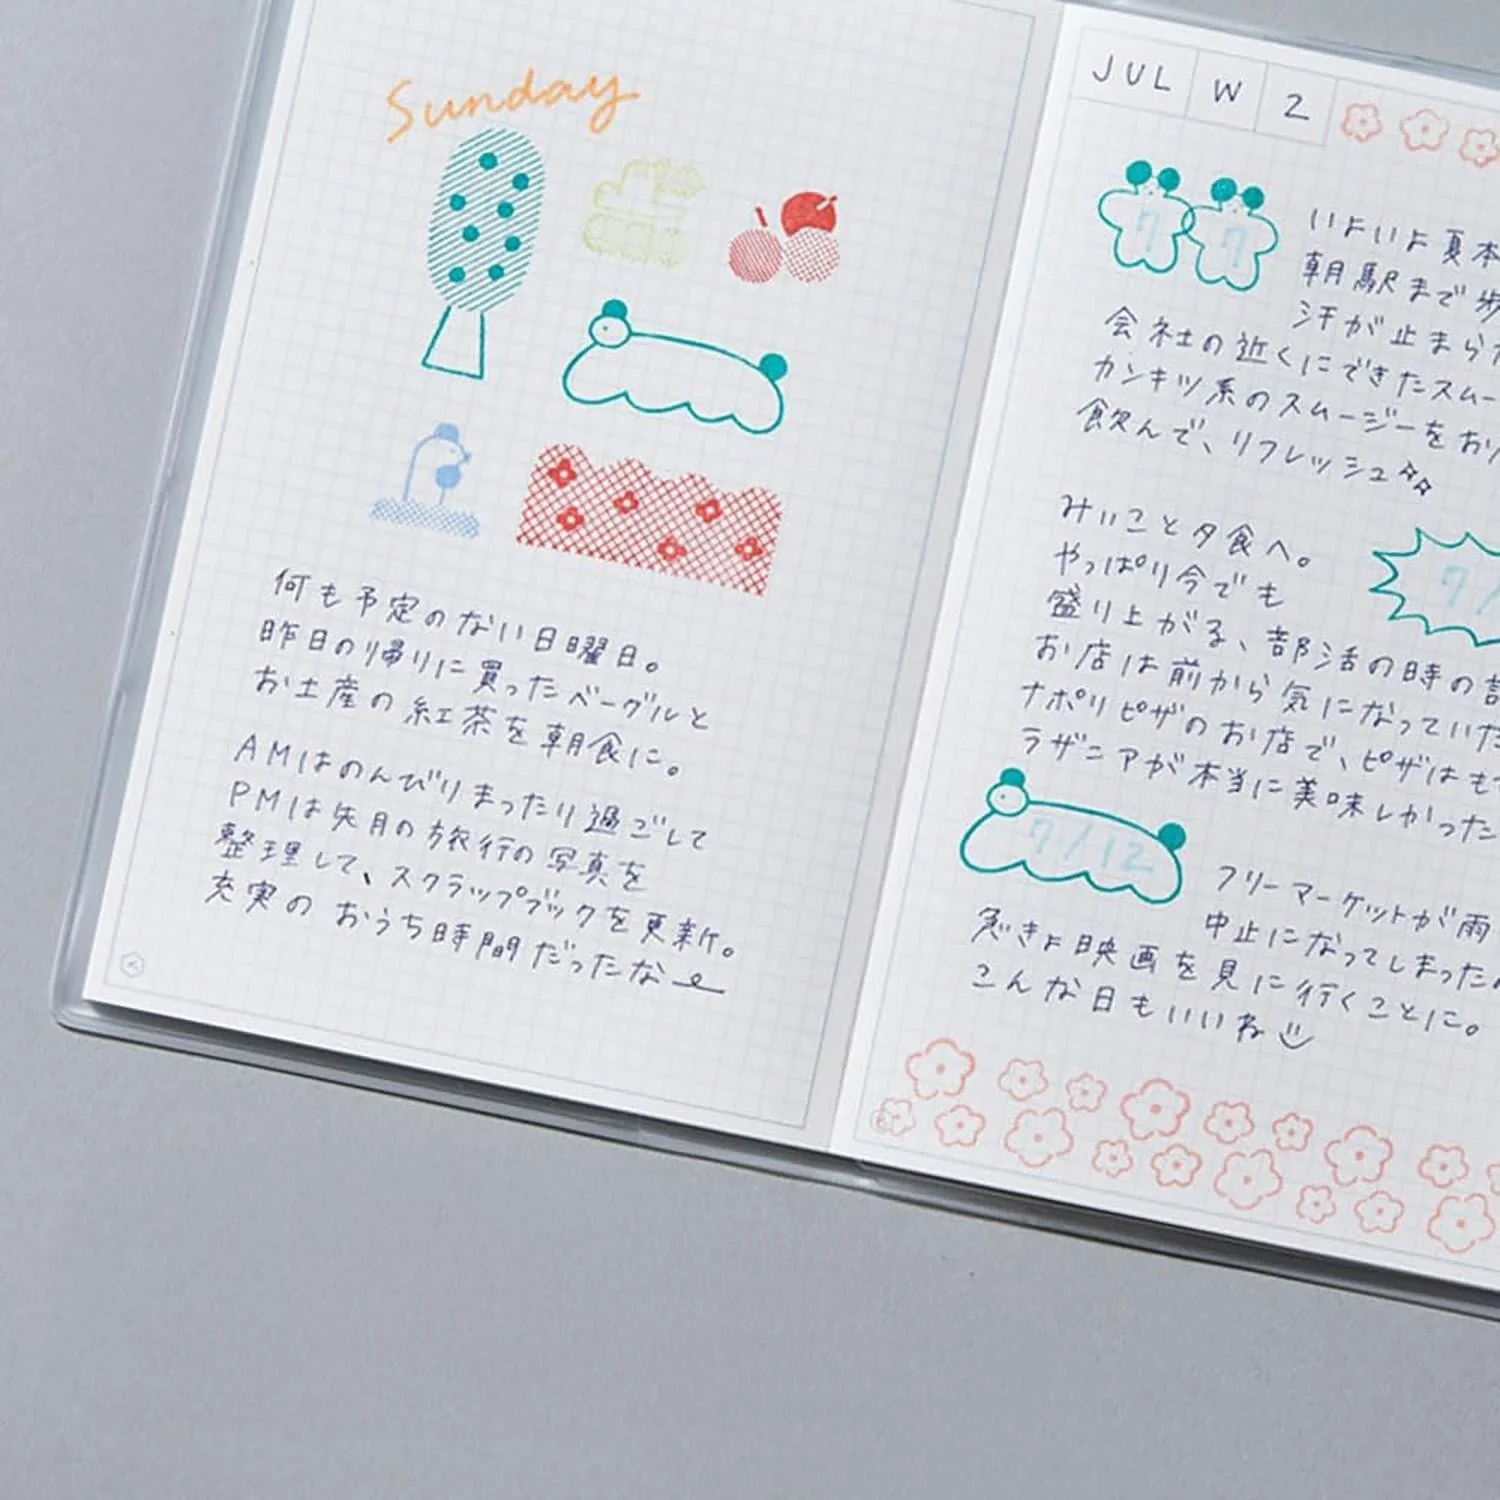 Sunday
何も予定のない日曜日。
昨日の帰りに買ったベーグルと
お土産の紅茶を朝食に。
AMはのんびりまったり過ごして
PMは先月の旅行の写真を
整理して、スクラップブックを更新。
充実のおうち時間だったな
JUL W 2
7 7
いよいよ夏本
朝駅まで歩
汗が止まら
会社の近くにできたスムー
カンキツ系のスムージーをお
飲んで、リフレッシュ
みいこと夕食へ。
やっぱり今でも
盛り上がる、部活の時の
7/
お店は前から気になっていた
ナポリピザのお店で、ピザはも
ラザニアが本当に美味しかった
7/12
フリーマーケットが雨
中止になってしまった
急きょ映画を見に行くことに。
こんな日もいいね